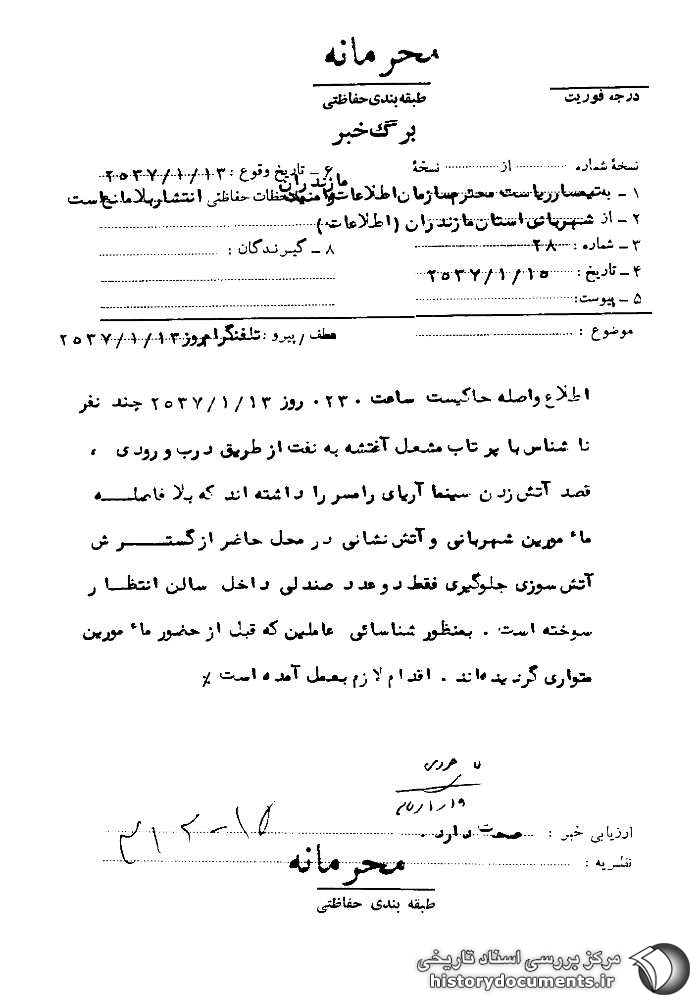 محرمانه
طبقه بندی حفاظتی
درجه فوریت
برگ خبر
نسخهٔ شماره از نسخهٔ
۱ ـ به تیمسار ریاست محترم سازمان اطلاعات و امنیت مازندران
۲ ـ از شهربانی استان مازندران (اطلاعات)
۳ ـ شماره : ۲۸
۴ ـ تاریخ : ۲۵۳۷/۱/۱۵
۵ ـ پیوست:
۶ ـ تاریخ وقوع : ۲۵۳۷/۱/۱۳
ملاحظات حفاظتی انتشار بلامانع است
۸ ـ گیرندگان :
موضوع :
عطف / پیرو : تلفنگرام روز ۲۵۳۷/۱/۱۳
اطلاع واصله حاکیست ساعت ۰۲۳۰ روز ۲۵۳۷/۱/۱۳ چند نفر
ناشناس با پرتاب مشعل آغتشه به نفت از طریق درب ورودی ،
قصد آتش زدن سینما آریای رامسر را داشته اند که بلا فاصلـــه
ماء مورین شهربانی و آتش نشانی در محل حاضر از گستـــرش
آتش سوزی جلوگیری فقط دو عدد صندلی داخل سالن انتظـار
سوخته است . بمنظور شناسائی عاملین که قبل از حضور ماء مورین
متواری گردیده‌اند . اقدام لازم بعمل آمده است ٪
ارزیابی خبر : صحت دارد .
نظریه :
۳۱۲-۱۵
محرمانه
طبقه بندی حفاظتی
مرکز بررسی اسناد تاریخی
historydocuments.ir